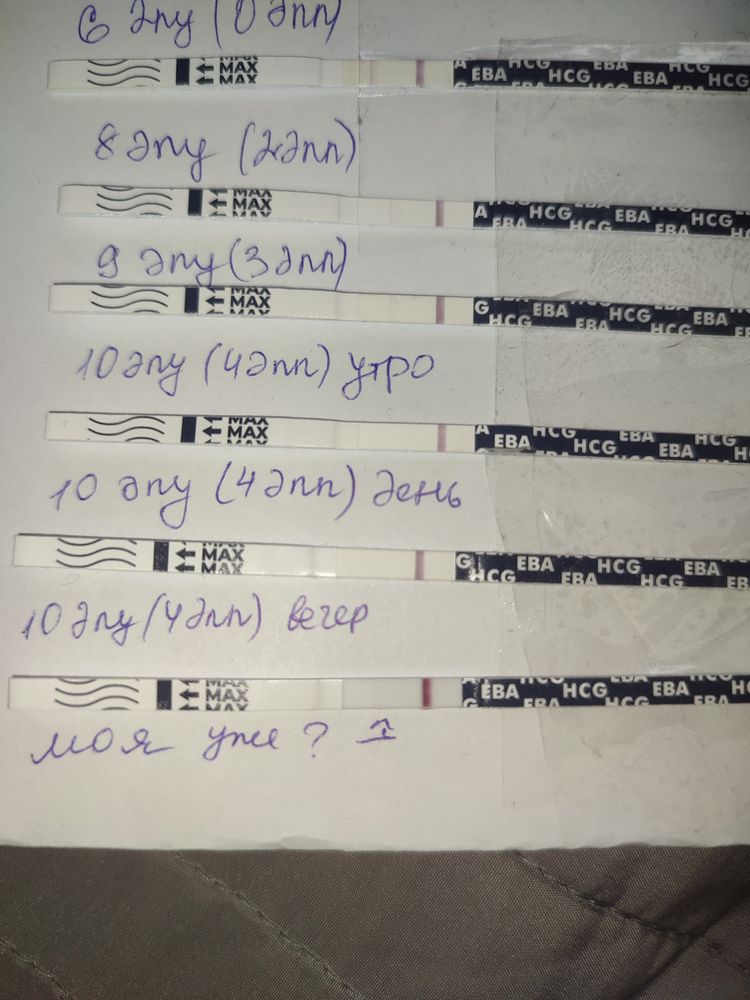 6 дпу (0 дпп)
MAX
MAX
MAX
EBA HCG EBA HCG EBA HCG
8 дпу (2дпп)
MAX
MAX
MAX
A HCG EBA HCG EBA
EBA HCG EBA HCG
9 дпу (3дпп)
MAX
MAX
MAX
G EBA HCG EBA
HCG EBA HCG
10 дпу (4дпп) утро
MAX
MAX
MAX
A HCG EBA HCG
EBA HCG EBA
10 дпу (4дпп) день
MAX
MAX
MAX
G EBA HCG EBA
HCG EBA HCG EBA
10 дпу (4дпп) вечер
MAX
MAX
MAX
EBA HCG EBA HCG
G EBA HCG EBA
моя уже ? ↑